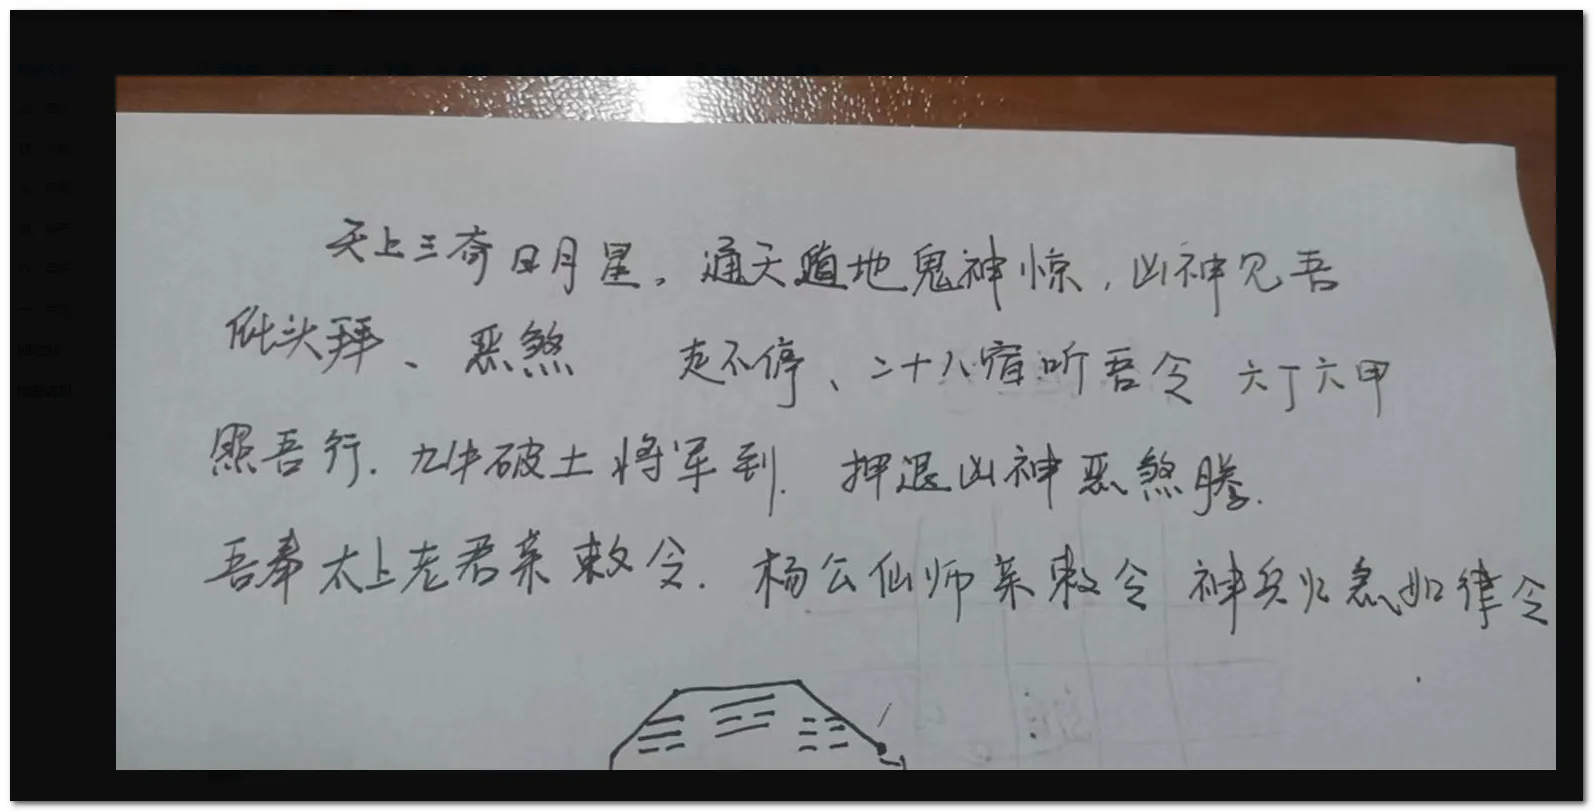 天上三奇日月星。通天遁地鬼神惊，凶神见吾
低头拜、恶煞 走不停、二十八宿听吾令 六丁六甲
照吾行. 九牛破土将军到. 押退凶神恶煞腾.
吾奉太上老君亲敕令. 杨公仙师亲敕令 神兵火急如律令